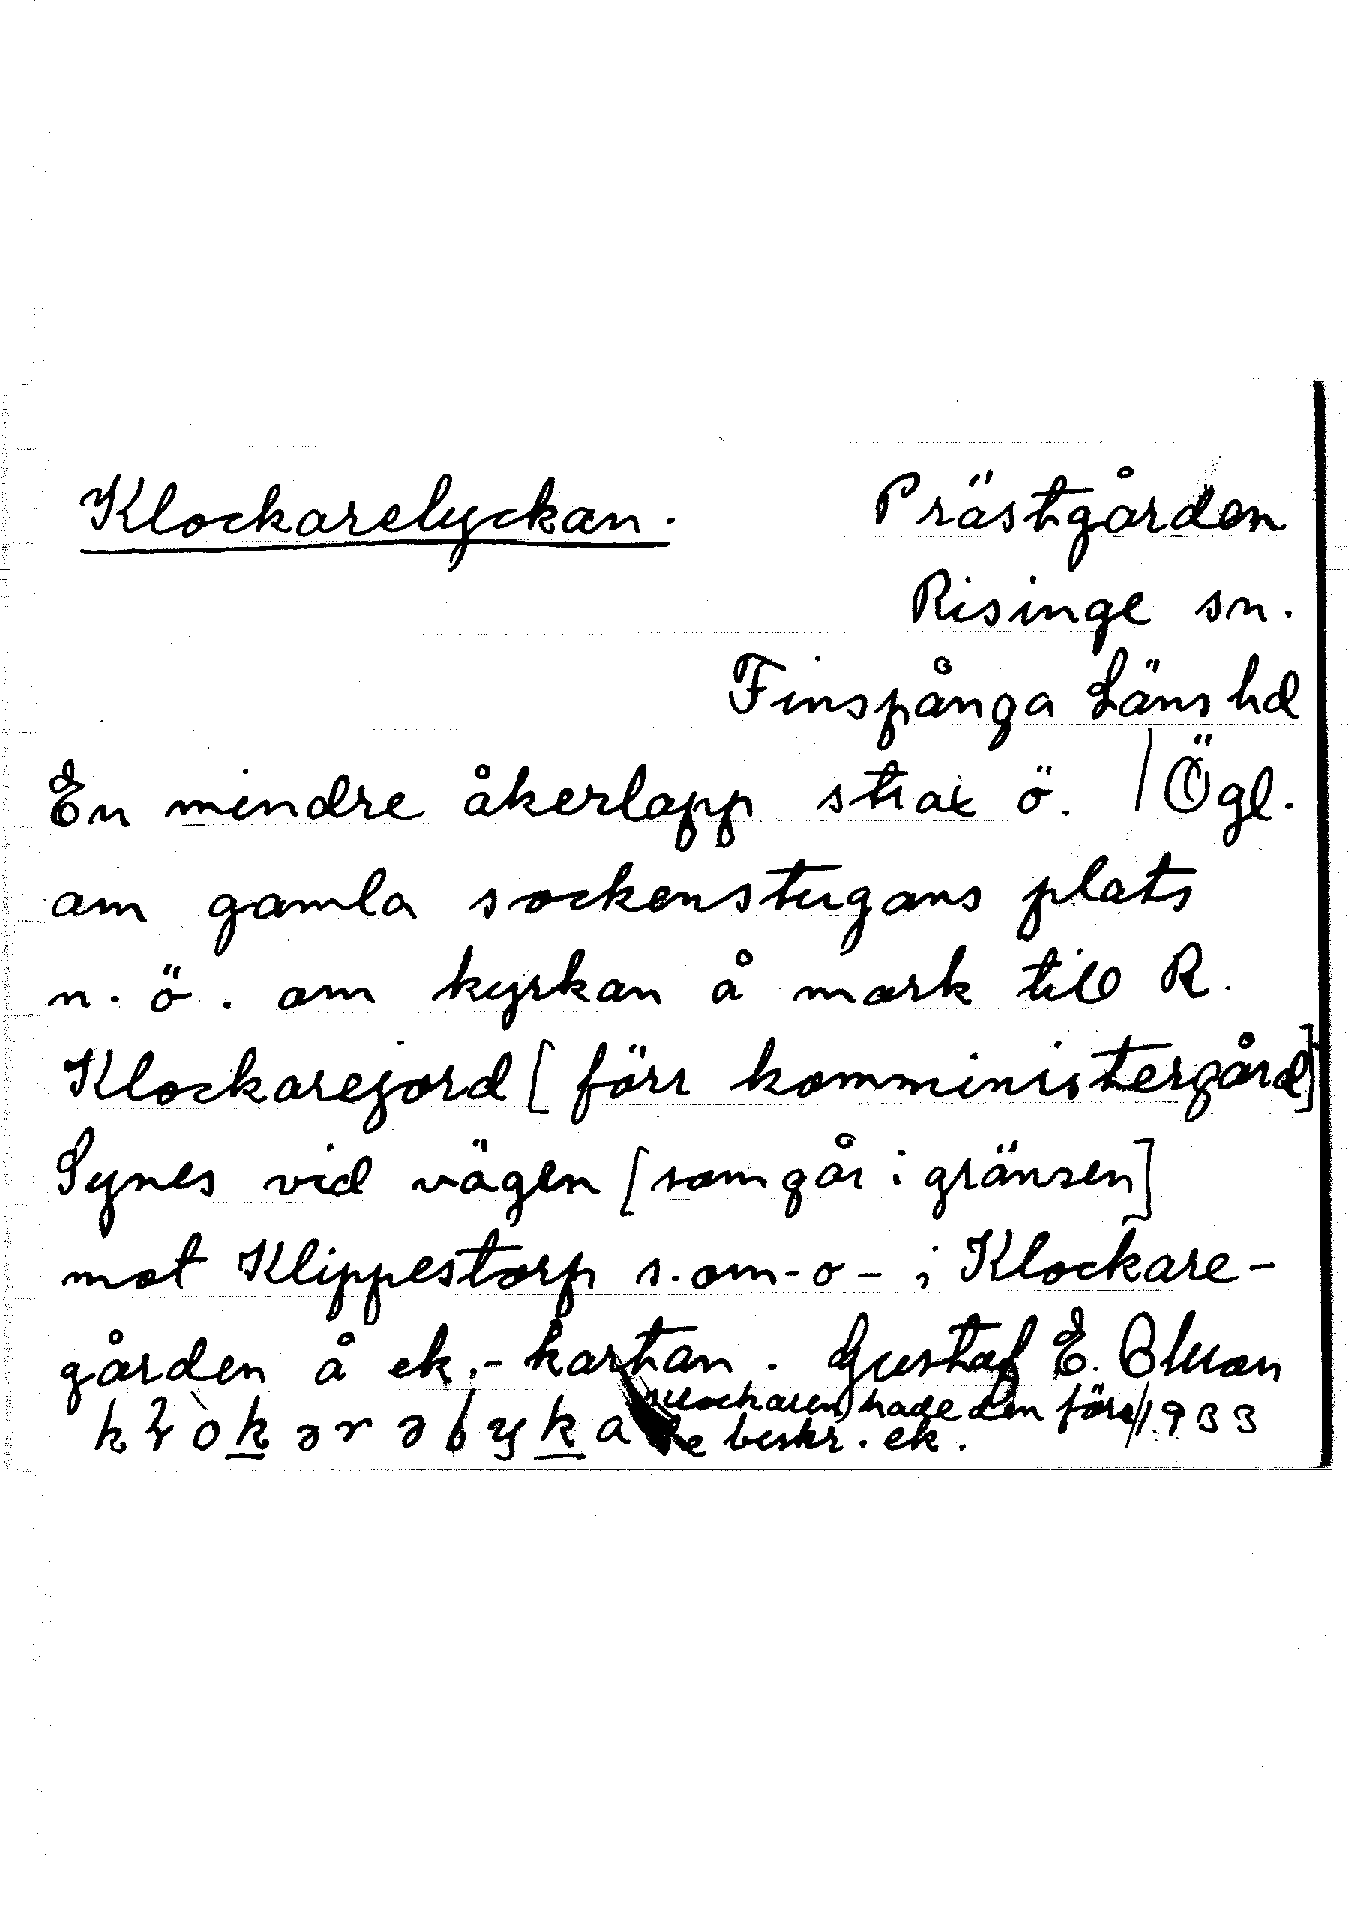 Klockarelyckan. Prästgården
Risinge sn.
Finspånga Läns hd
En mindre åkerlapp strax ö. / Ögl.
om gamla sockenstugans plats
n. ö. om kyrkan å mark till R.
Klockarejord [förr komministergård]
Synes vid vägen [som går i gränsen]
mot Klippestorp s. om - o - i Klockare-
gården å ek.-kartan. Gustaf E.
klockaren hade den förr / 1933
se beskr. ek.